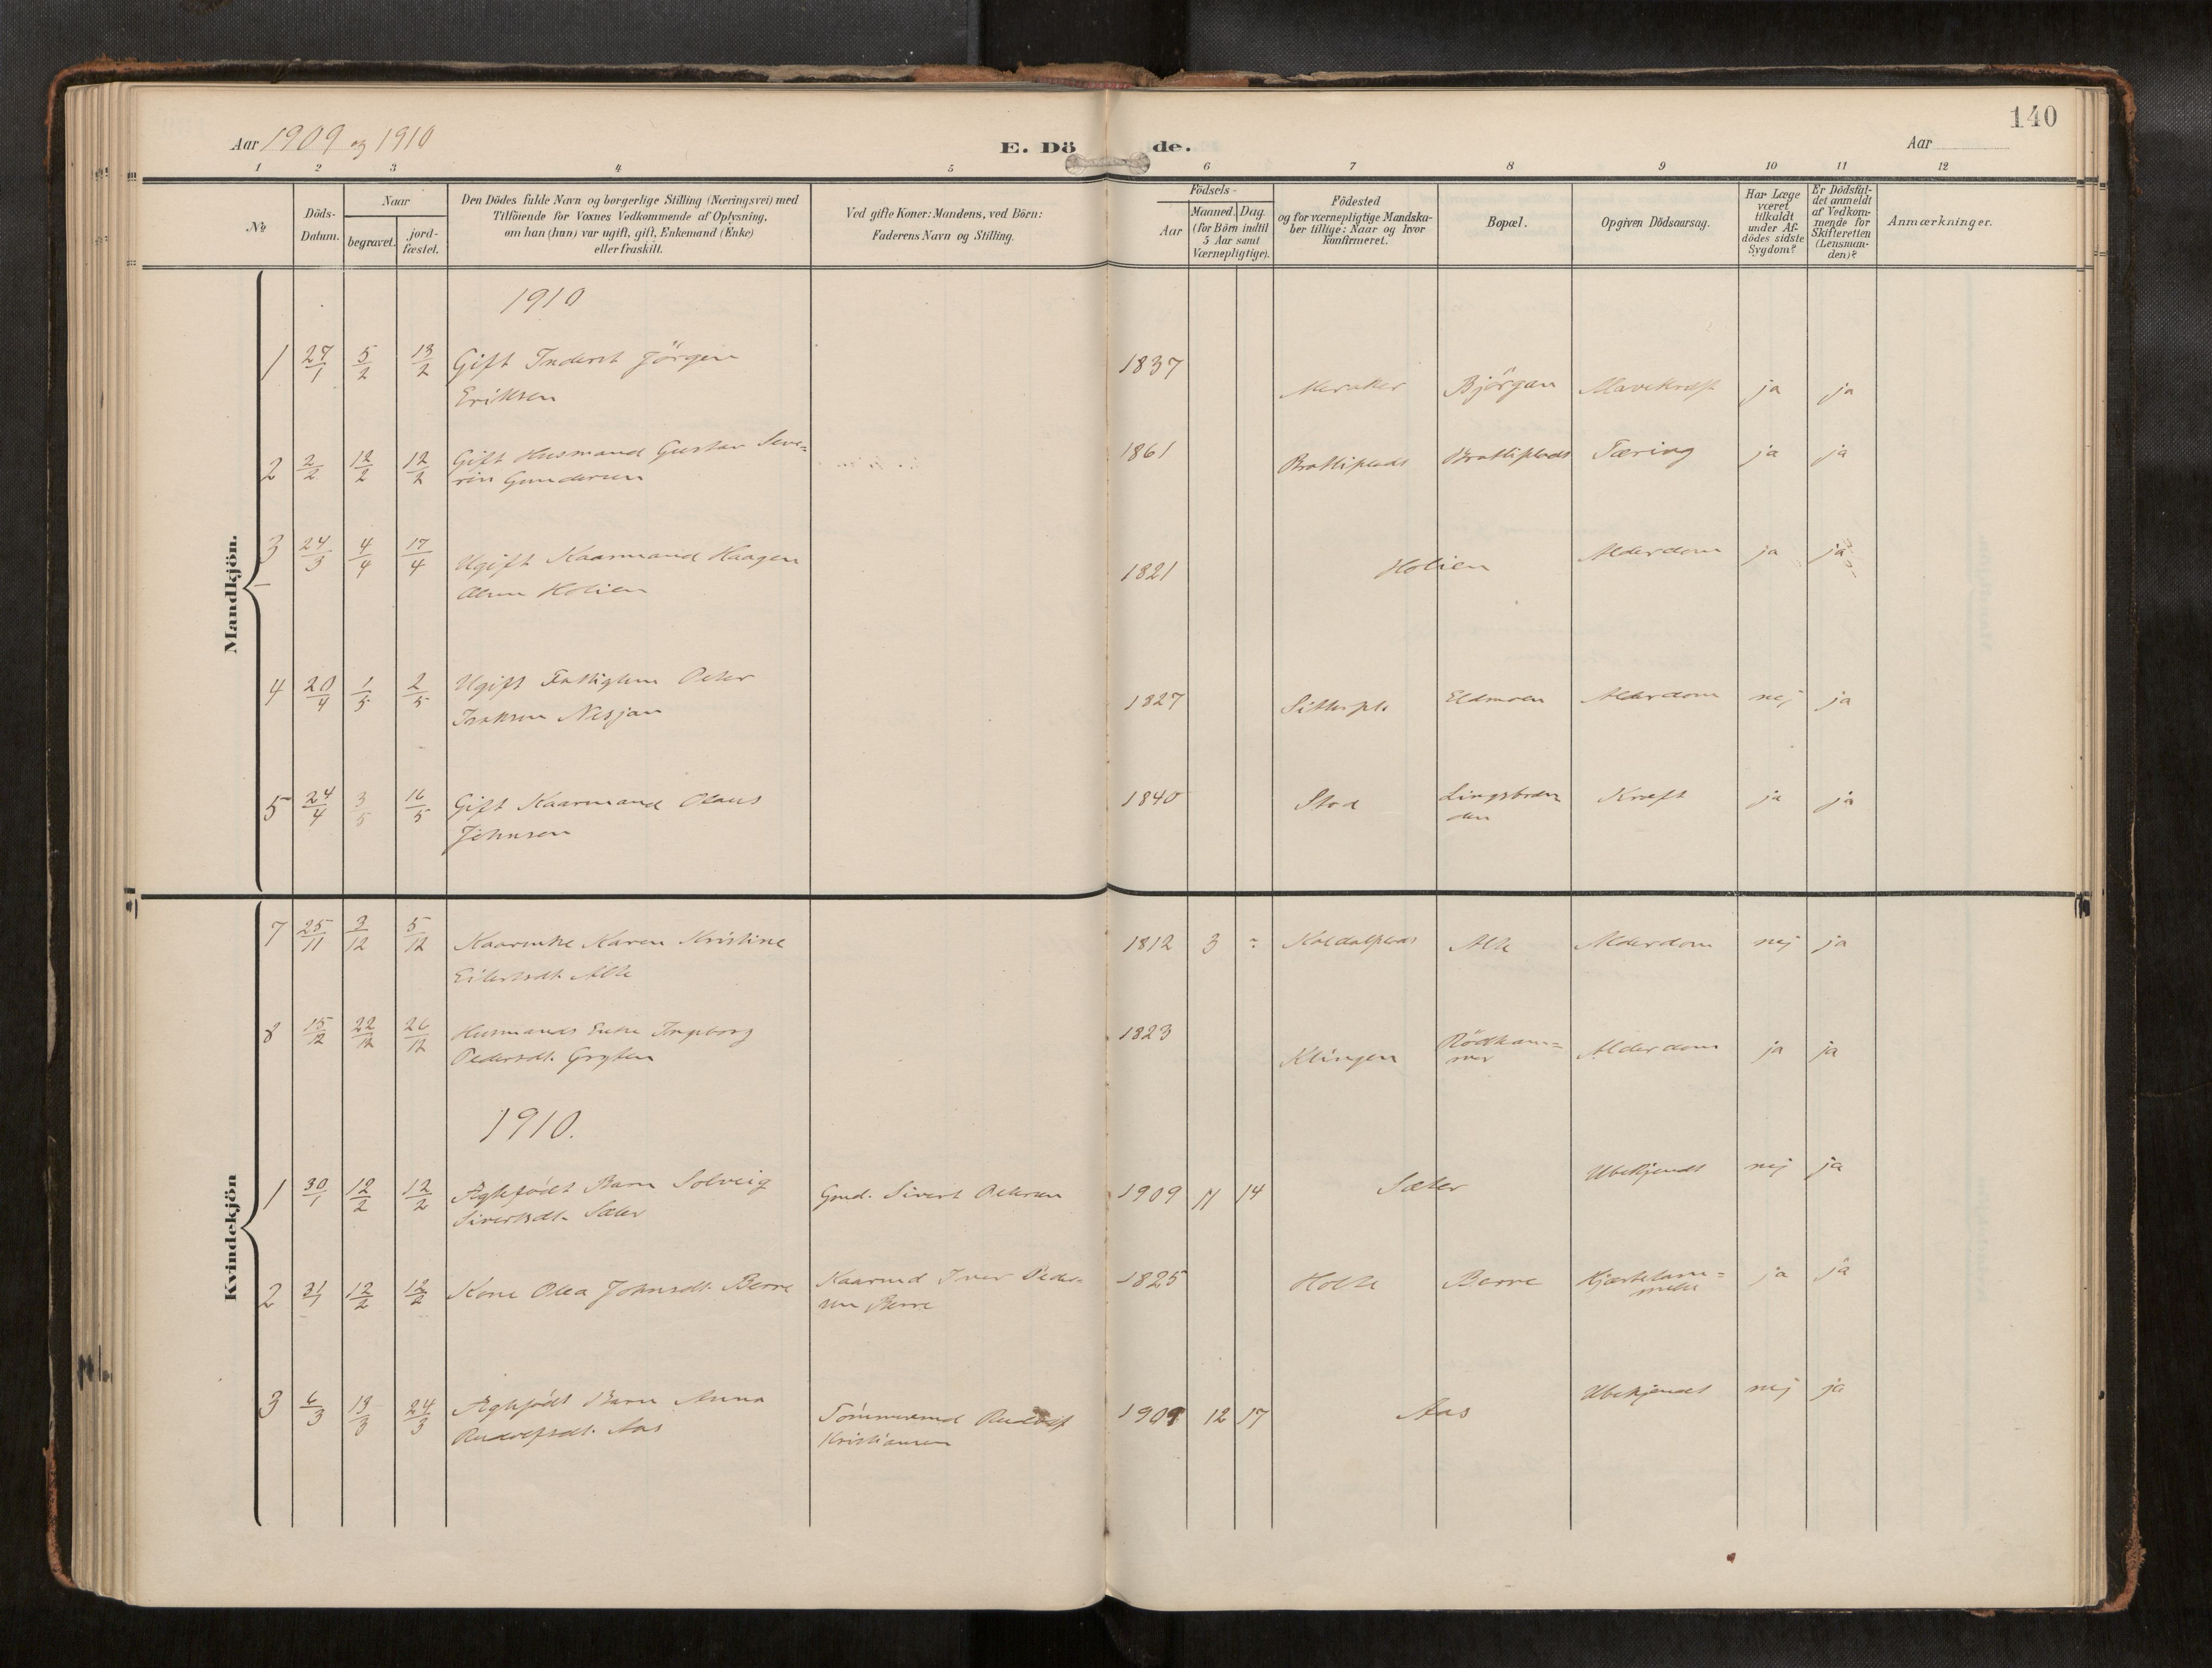 140
Aar 1909 og 1910
E. Döde.
Aar
1 2 3 4 5 6 7 8 9 10 11 12
No
Döds-
Datum.
Naar
begravet.
jord-
fæstet.
Den Dödes fulde Navn og borgerlige Stilling (Næringsvei) med
Tilföiende for Voxnes Vedkommende af Oplysning,
om han (hun) var ugift, gift, Enkemand (Enke)
eller fraskilt.
Ved gifte Koner: Mandens, ved Börn:
Faderens Navn og Stilling.
Födsels-
Aar
Maaned. Dag.
(for Börn indtil
5 Aar samt
Værnepligtige).
Födested
og for værnepligtige Mandska-
ber tillige: Naar og hvor
konfirmeret.
Bopæl.
Opgiven Dödsaarsag.
Har Læge
været
tilkaldt
under Af-
dödes sidste
Sygdom?
Er Dödsfal-
det anmeldt
af Vedkom-
mende for
Skifteretten
(Lensman-
den)?
Anmærkninger.
Mandkjön.
1910
1 27/1 5/2 13/2 Gift Inderst Jörgen 1837
Eriksen Meraker Björgan Mavekræft ja ja
2 2/2 12/2 12/2 Gift Husmand Gustav Seve= 1861 Brattiplads Brattiplads Tæring ja ja
rin Gundersen
3 24/3 4/4 17/4 Ugift Kaarmand Haagen 1821 Holien Alderdom ja ja
Olsen Holien
4 20/4 1/5 2/5 Ugift Fattiglem Peter 1827 Eldmoen Alderdom nej ja
Isaksen Nesjan
5 24/4 3/5 16/5 Gift Kaarmand Olaus 1840 Stod Lingsbræn Kræft ja ja
den
Johnsen
Kvindekjön
7 25/11 3/12 5/12 Kaarenke Karen Kristine 1812 3 ? Alderdom nej ja
Eilertsdt.
8 15/12 22/12 26/12 Husmands Enke Ingeborg 1823
Pedersdt. Gryten Klingen Rödham=
mer Alderdom ja ja
1910.
1 30/1 12/2 12/2 Ægtefödt Barn Solveig Gmd. Sivert Petersen 1909 11 14 Sæter Ubekjendt nej ja
Sivertsdt. Sæter
2 31/1 12/2 12/2 Kone Olea Johnsdt. Berre Kaarmd Iver Peder- 1825 Holte Berre Hjertelam= ja ja
sen Berre
3 6/3 13/3 24/3 Ægtefödt Barn Anna Tömmermd Rudolf 1909 12 17 Aas Ubekjendt nej ja
Rudolfsdt. Aas Kristiansen